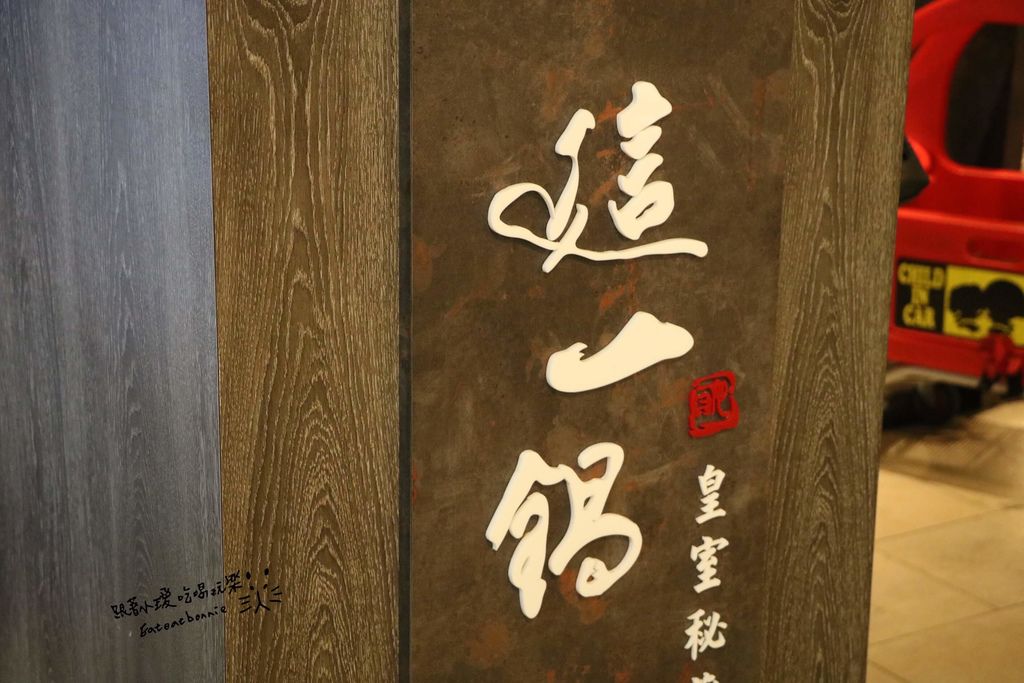 這一鍋
皇室秘
CHILD
IN
CAR
跟著小璦吃喝玩樂
Eatoatbonnie